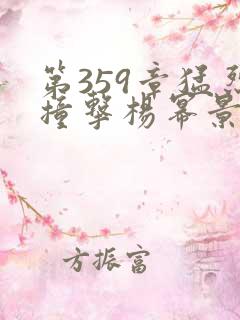 第359章猛烈
撞擊楊冪景
方振富